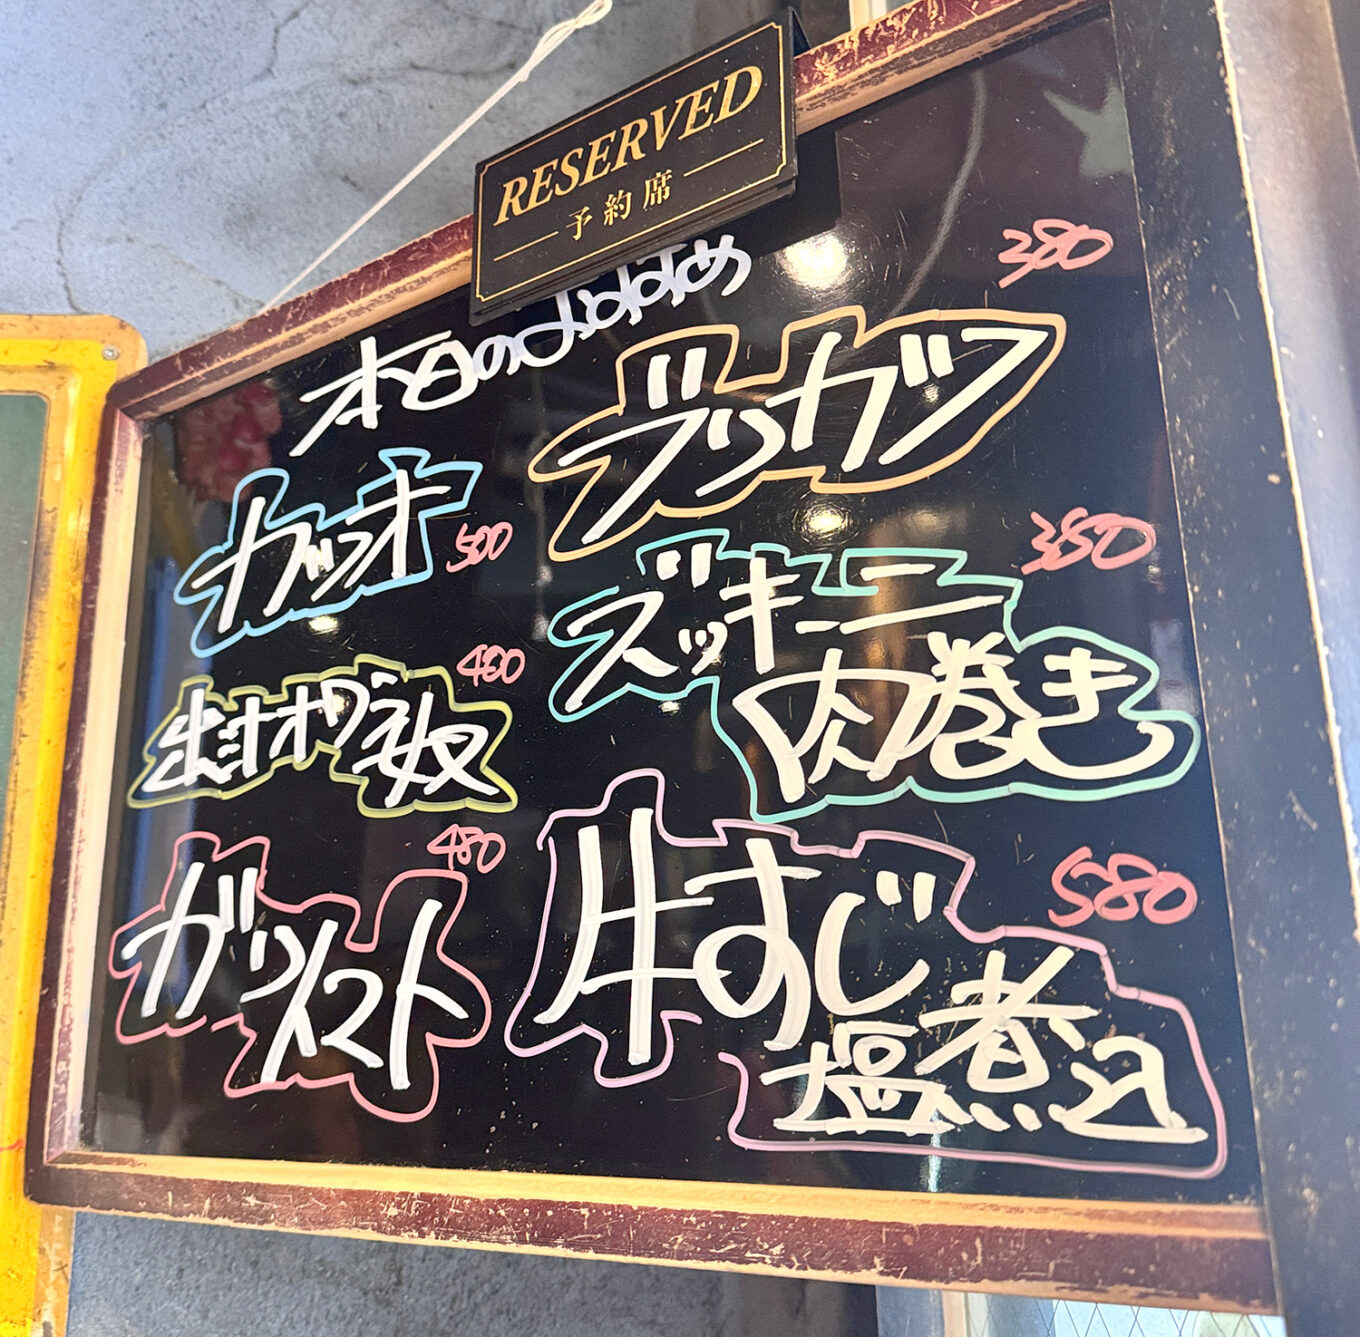 RESERVED
予約席
本日のおすすめ
カツオ
500
出汁オクラ奴
480
ガリトマト
480
ブリカツ
380
ズッキーニ
肉巻き
350
牛すじ
塩煮込
580